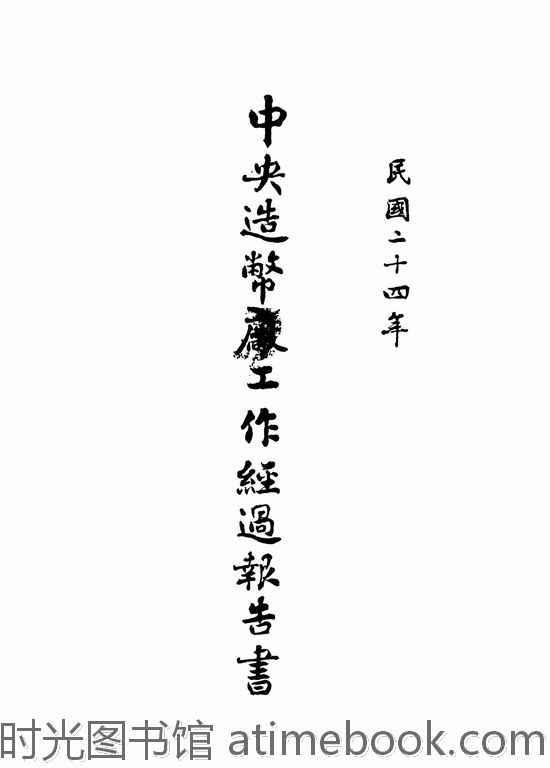 民國二十四年
中央造幣廠工作經過報告書
时光图书馆 atimebook.com